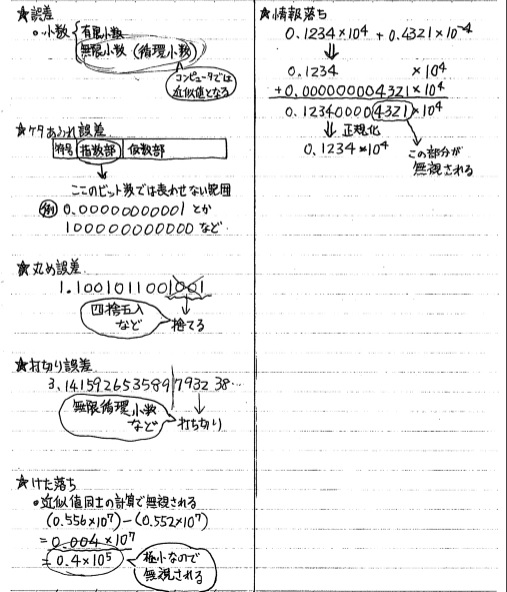 ★誤差
◦小数{有限小数
無限小数(循環小数)
コンピュータでは
近似値となる
★ケタあふれ誤差
符号 指数部 仮数部
ここのビット数では表わせない範囲
例 0.00000000001とか
100000000000など
★丸め誤差
1.1001011001001
四捨五入
など
捨てる
★打切り誤差
3.141592653589793238…
無限循環小数
など
打ち切り
★けた落ち
◦近似値同士の計算で無視される
(0.556×10⁷)-(0.552×10⁷)
=0.004×10⁷
=0.4×10⁵
極小なので
無視される
★情報落ち
0.1234×10⁴+0.4321×10⁻⁴
0.1234 ×10⁴
+0.000000004321×10⁴
0.123400004321×10⁴
正規化
0.1234×10⁴
この部分が
無視される